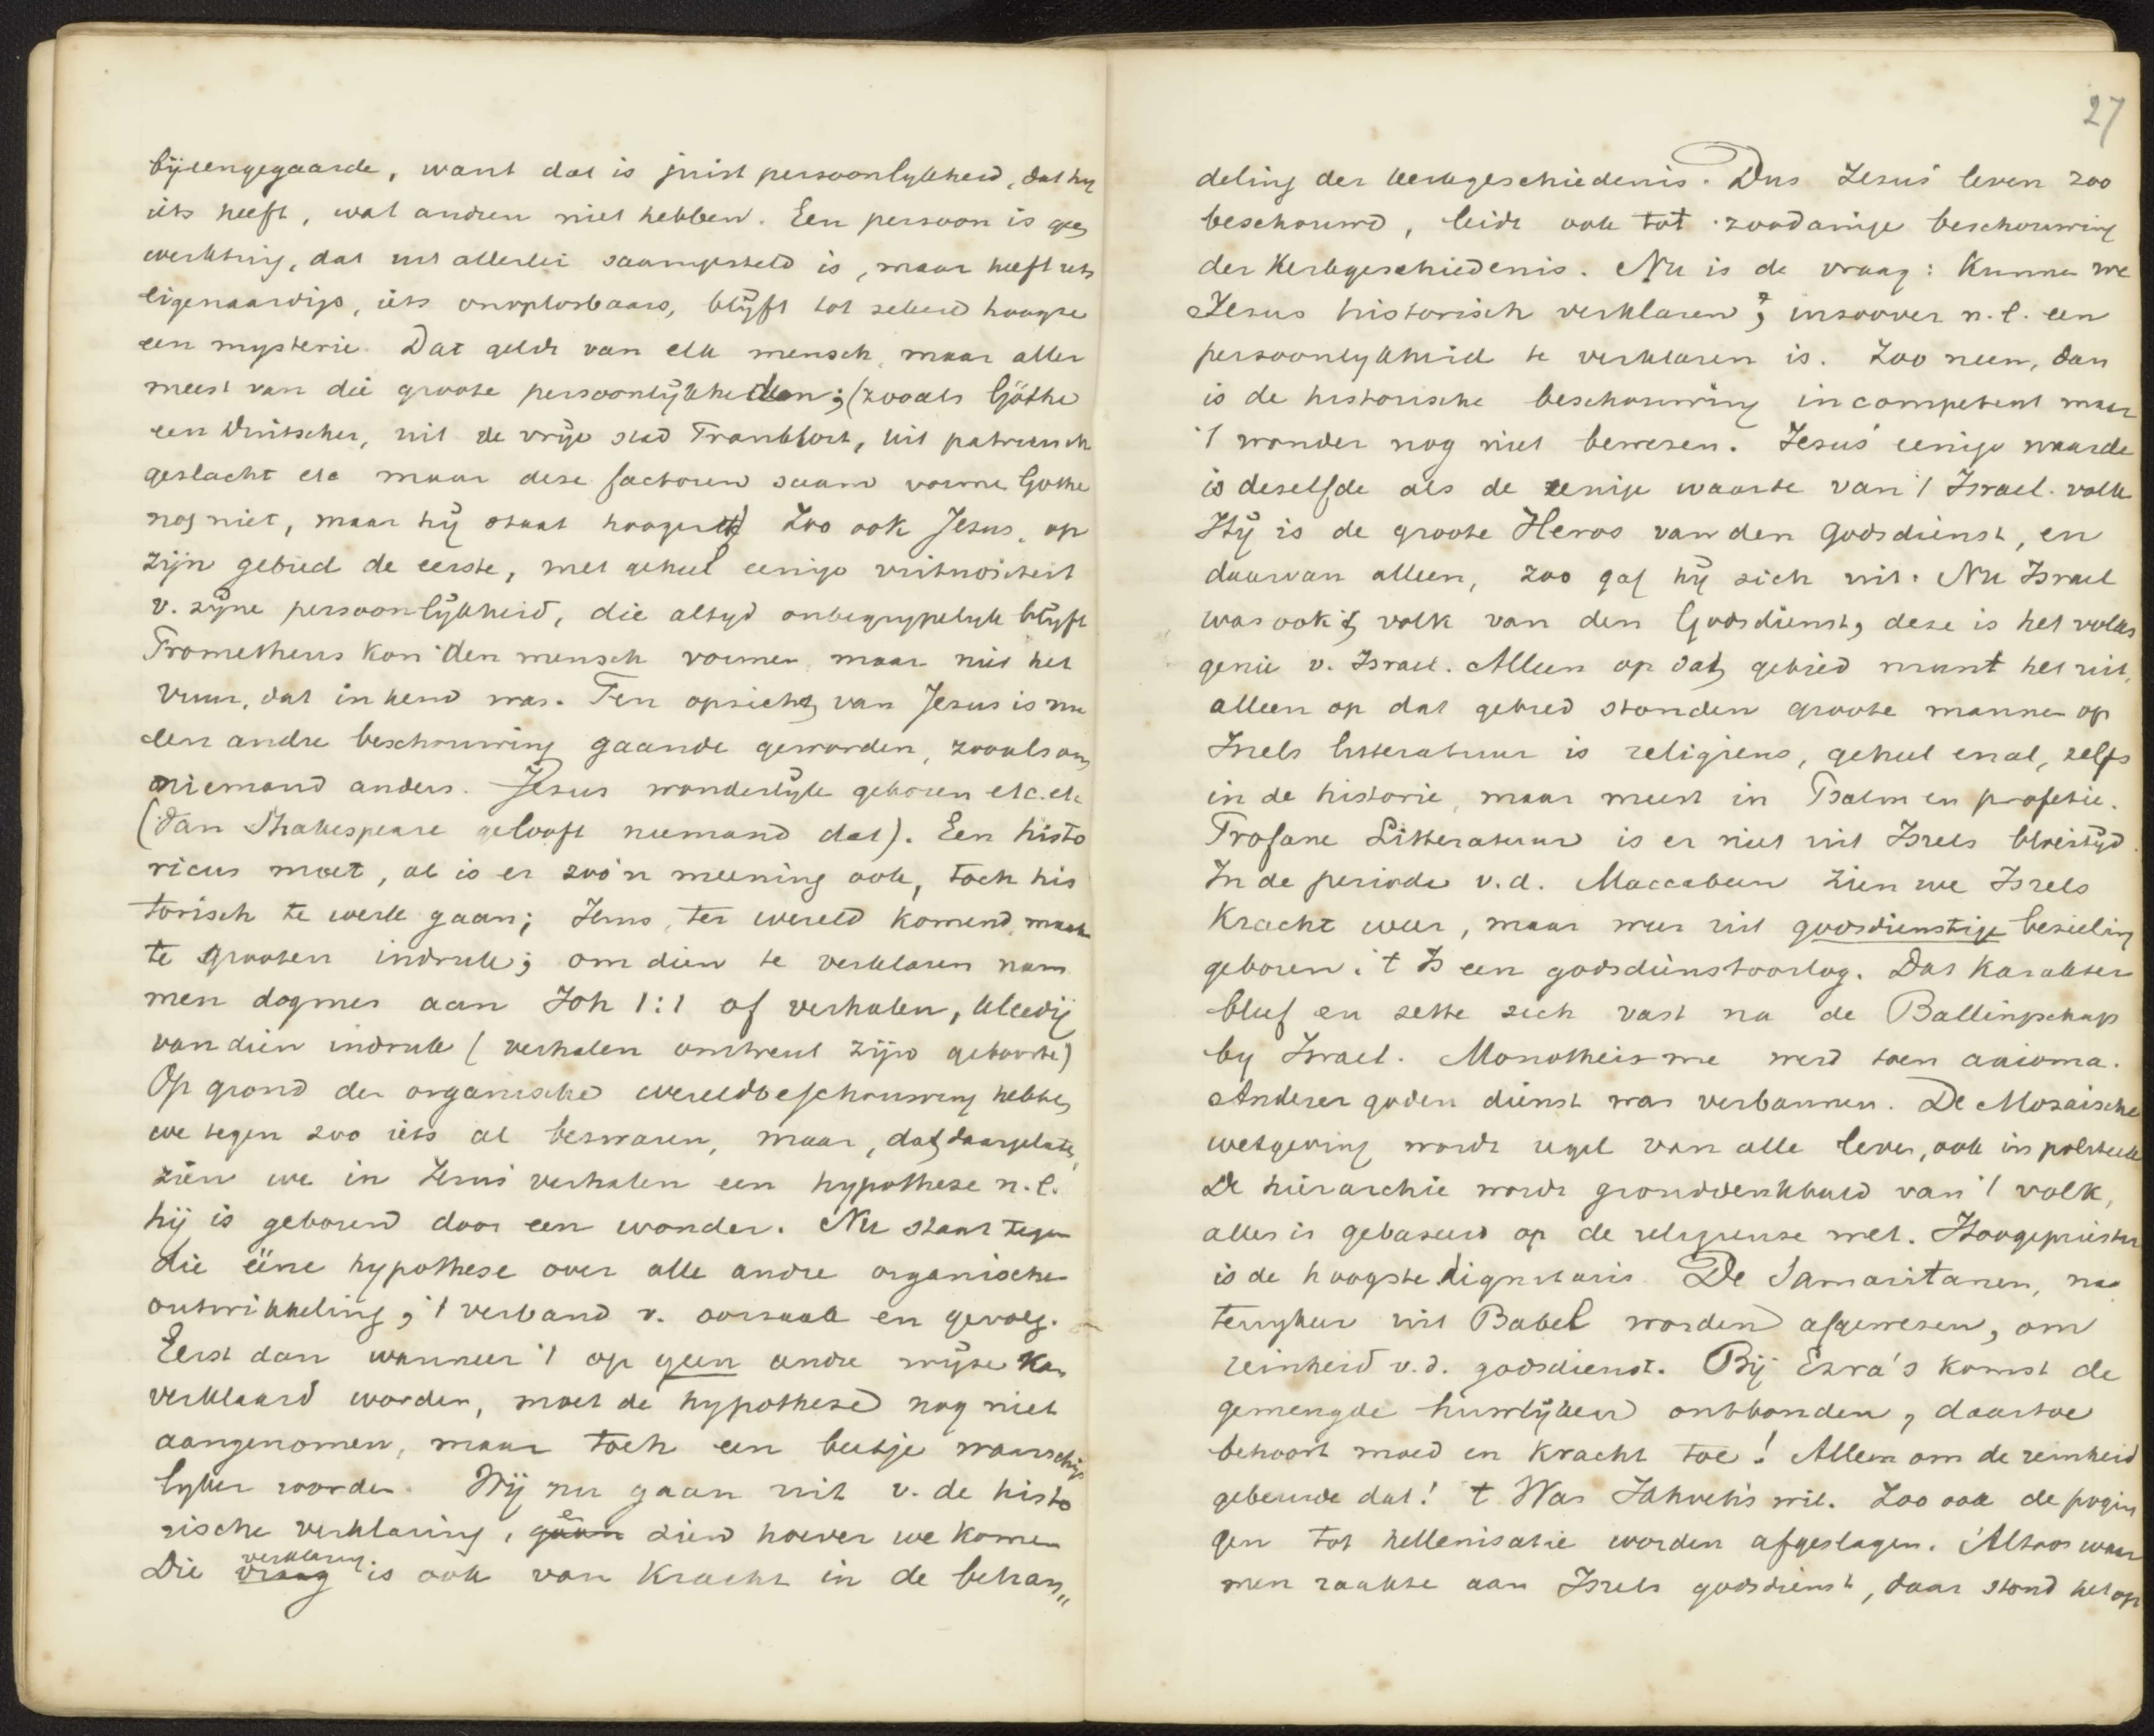 bijeengegaarde, want dat is juist persoonlykheid, dat hy
iets heeft, wat andren niet hebben. Een persoon is geen
werktuig, dat uit allerlei saamgesteld is, maar heeft iets
eigenaardigs, iets onoplosbaars, blijft tot zekere hoogte
een mysterie. Dat geldt van elk mensch, maar aller
meest van die groote persoonlijkheden; (zooals Göthe
een Duitscher, uit de vrije stad Frankfort, uit patricisch
geslacht etc maar deze factoren saam vormen Gothe
nog niet, maar hij staat hooger) Zoo ook Jesus, op
zijn gebied de eerste, met geheel eenige
v. zijne persoonlijkheid, die altyd onbegrypelyk blijft
Prometheus kon den mensch vormen maar niet het
vuur, dat in hem was. Ten opzichte van Jesus is nu
een andre beschouwing gaande geworden, zooals van
niemand anders. Jesus wonderlijk geboren etc. etc
(van Shakespeare gelooft niemand dat). Een histo
ricus moet, al is er zoo'n meening ook, toch his
torisch te werk gaan; Jesus, ter wereld komend, maak
te grooten indruk; om dien te verklaren nam
men dogmes aan Joh 1:1 of verhalen, kleedij
van dien indruk (verhalen omtrent zijn geboorte)
Op grond der organische wereldbeschouwing hebben
we tegen zoo iets al bezwaren, maar, dat daargelaten,
zien we in Jesus' verhalen een hypothese n.l.
hij is geboren door een wonder. Nu staat tegen
die ééne hypothese over alle andre organische
ontwikkeling, 't verband v. oorzaak en gevolg.
Eerst dan wanneer 't op geen andre wijze kan
verklaard worden, moet de hypothese nog niet
aangenomen, maar toch een beetje waarschijn
lyker worden. Wij nu gaan uit v. de histo
rische verklaring, gaan zien hoever we komen
Die vraag verklaring is ook van kracht in de behan„
27
deling der kerkgeschiedenis. Dus Jesus' leven zoo
beschouwd, leidt ook tot zoodanige beschouwing
der Kerkgeschiedenis. Nu is de vraag: Kunnen we
Jesus historisch verklaren?, insoover n.l. een
persoonlykheid te verklaren is. Zoo neen, dan
is de historische beschouwing incompetent maar
't wonder nog niet bewezen. Jesus' eenige waarde
is deselfde als de eenige waarde van 't Israel. volk
Hij is de groote Heros van den Godsdienst, en
daarvan alleen, zoo gaf hij zich uit. Nu Israel
was ook 't volk van den Godsdienst, deze is het volks
genie v. Israel. Alleen op dat gebied munt het uit,
alleen op dat gebied stonden groote mannen op
Isrels litteratuur is religieus, geheel en al, zelfs
in de historie, maar meest in Psalm en profetie.
Profane Litteratuur is er niet uit Isrels bloeityd.
In de periode v.d. Maccabeen zien we Isrels
Kracht weer, maar weer uit godsdienstige bezieling
geboren. 't Is een godsdienstoorlog. Dat karakter
bleef en zette zich vast na de Ballingschap
by Israel. Monotheisme werd toen axioma.
Anderer goden dienst was verbannen. De Mozaische
wetgeving wordt regel van alle leven, ook in politiek
De hiërarchie wordt gronddenkbeeld van 't volk,
alles is gebaseerd op de religieuse wet. Hoogepriester
is de hoogste dignitaris. De Samaritanen, na
terugkeer uit Babel worden afgewezen, om
reinheid v.d. godsdienst. Bij Ezra's komst de
gemengde huwlijken ontbonden, daartoe
behoort moed en kracht toe! Alleen om de reinheid
gebeurde dat! 't Was Jahveh's wil. Zoo ook de pogin
gen tot hellenisatie worden afgeslagen. Altoos waar
men raakte aan Isrels godsdienst, daar stond het op